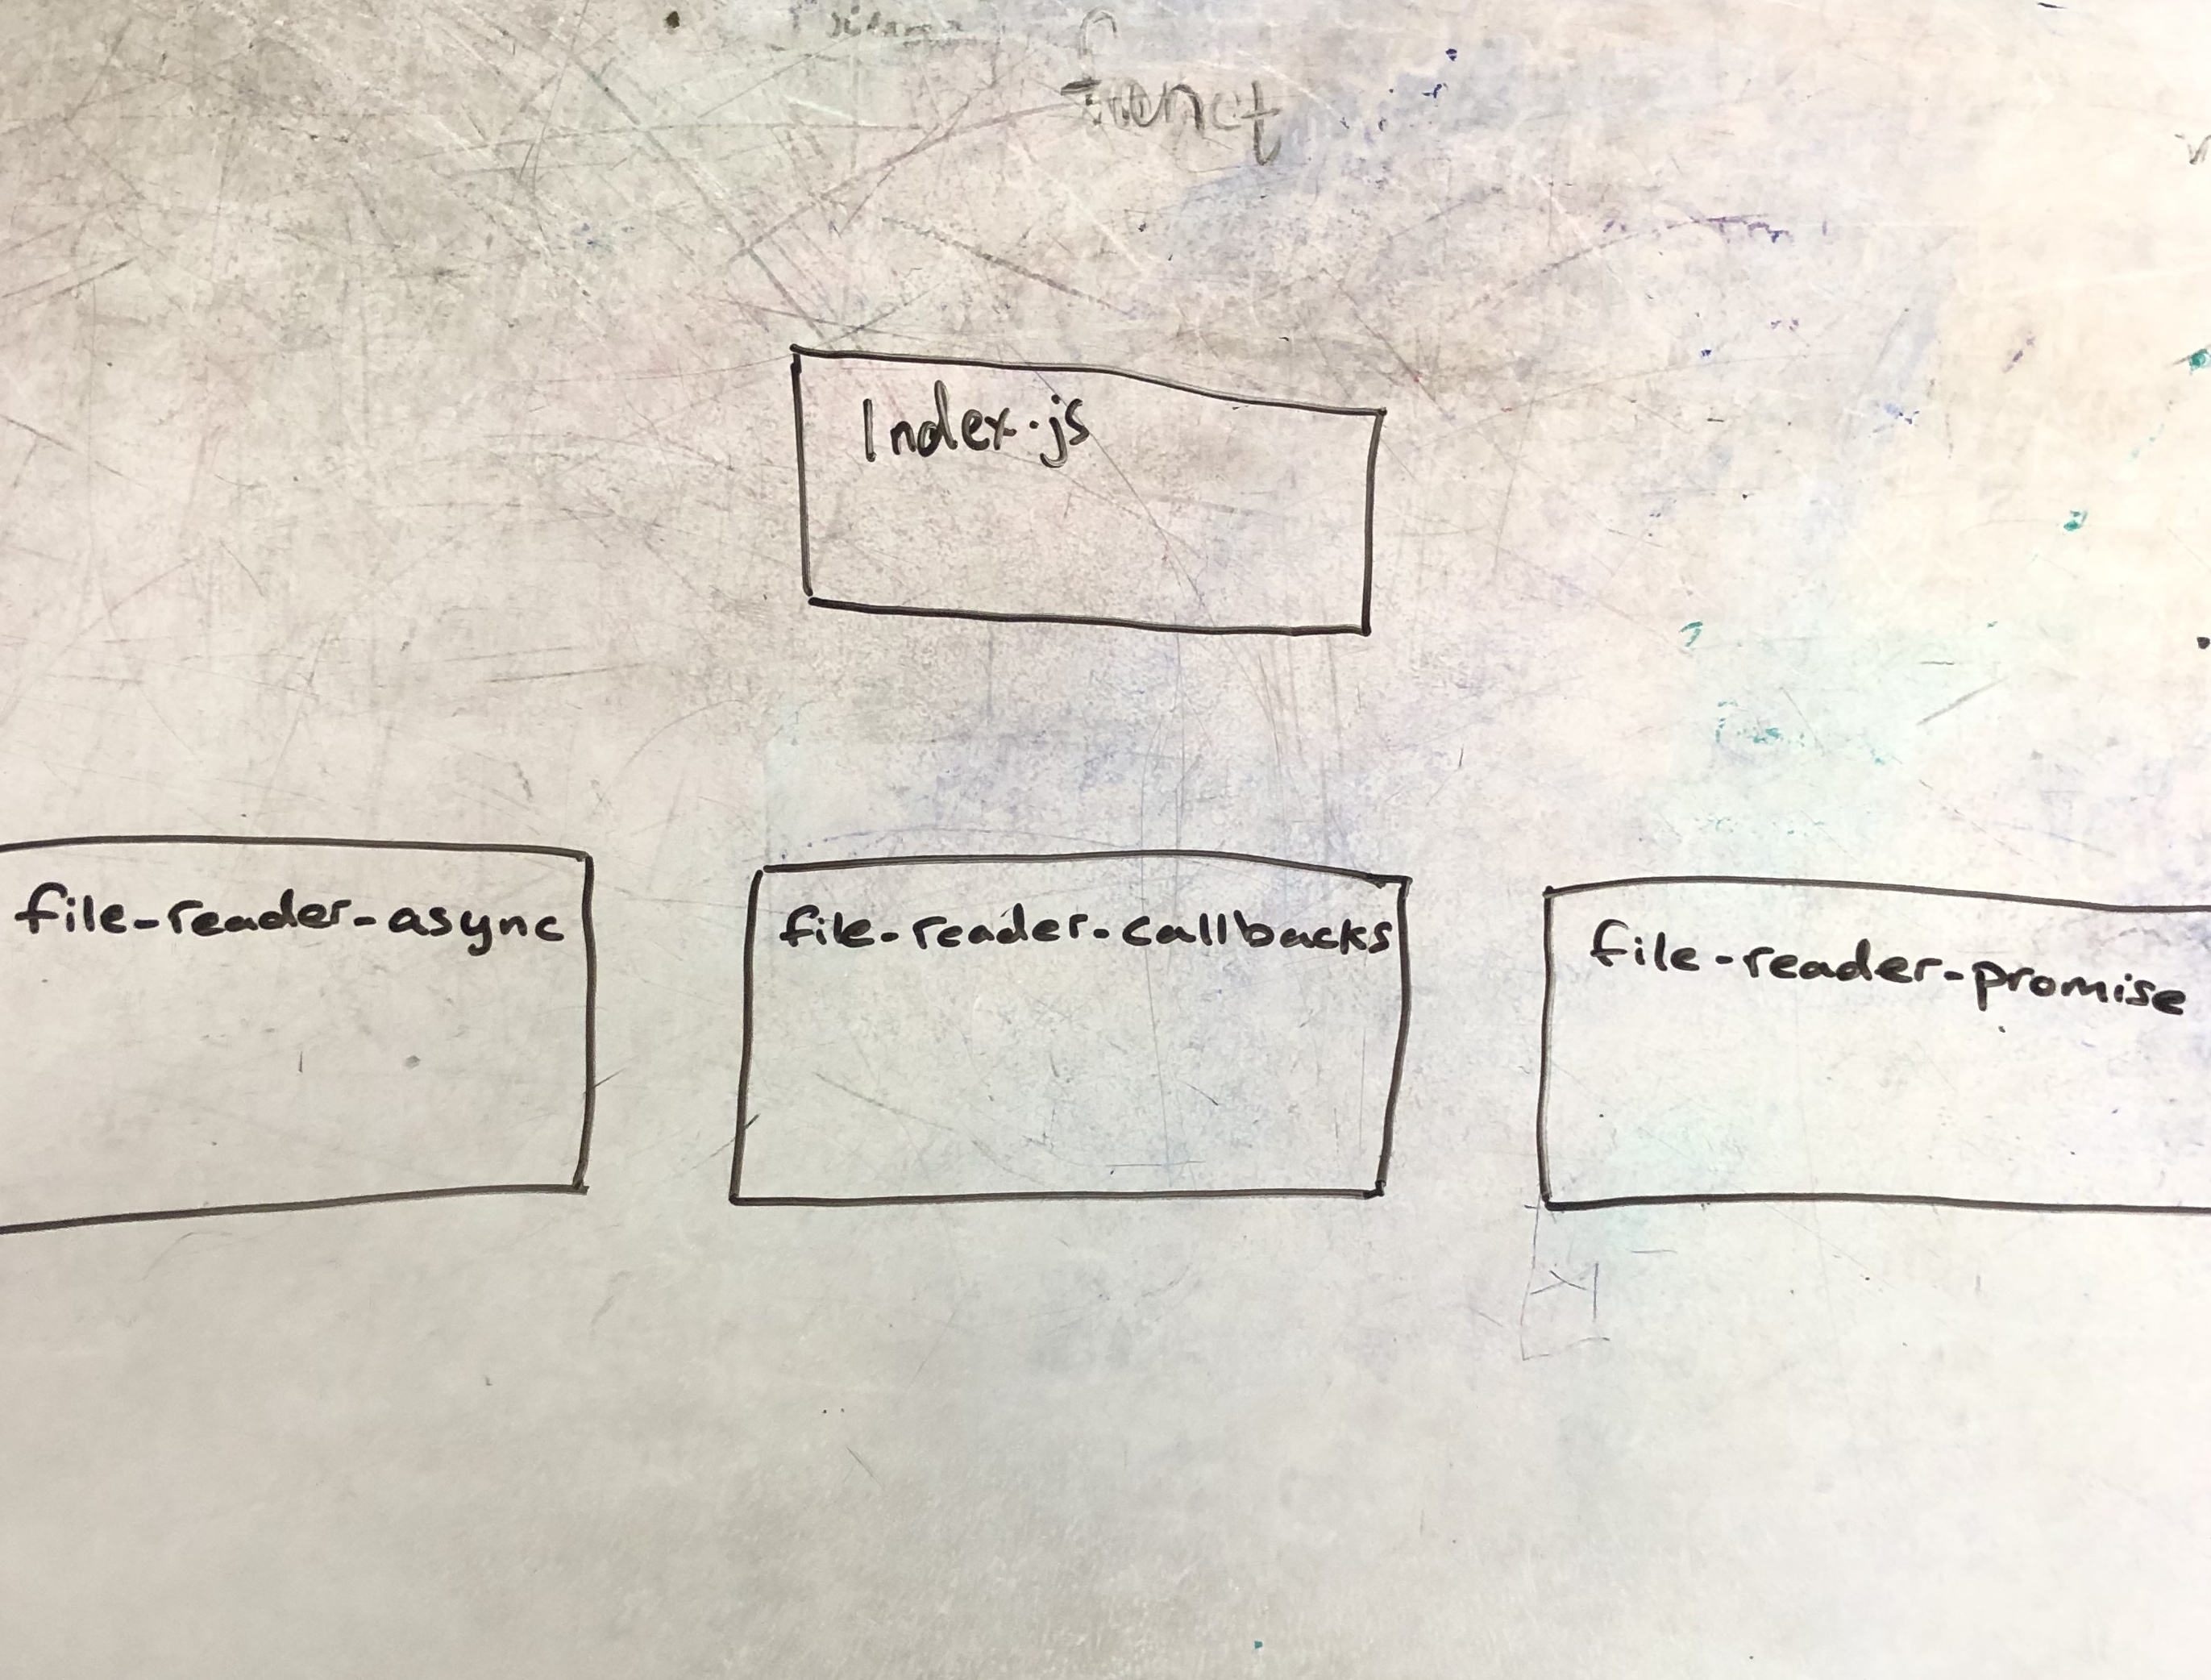 Index.js
file-reader-async
file-reader-callbacks
file-reader-promise